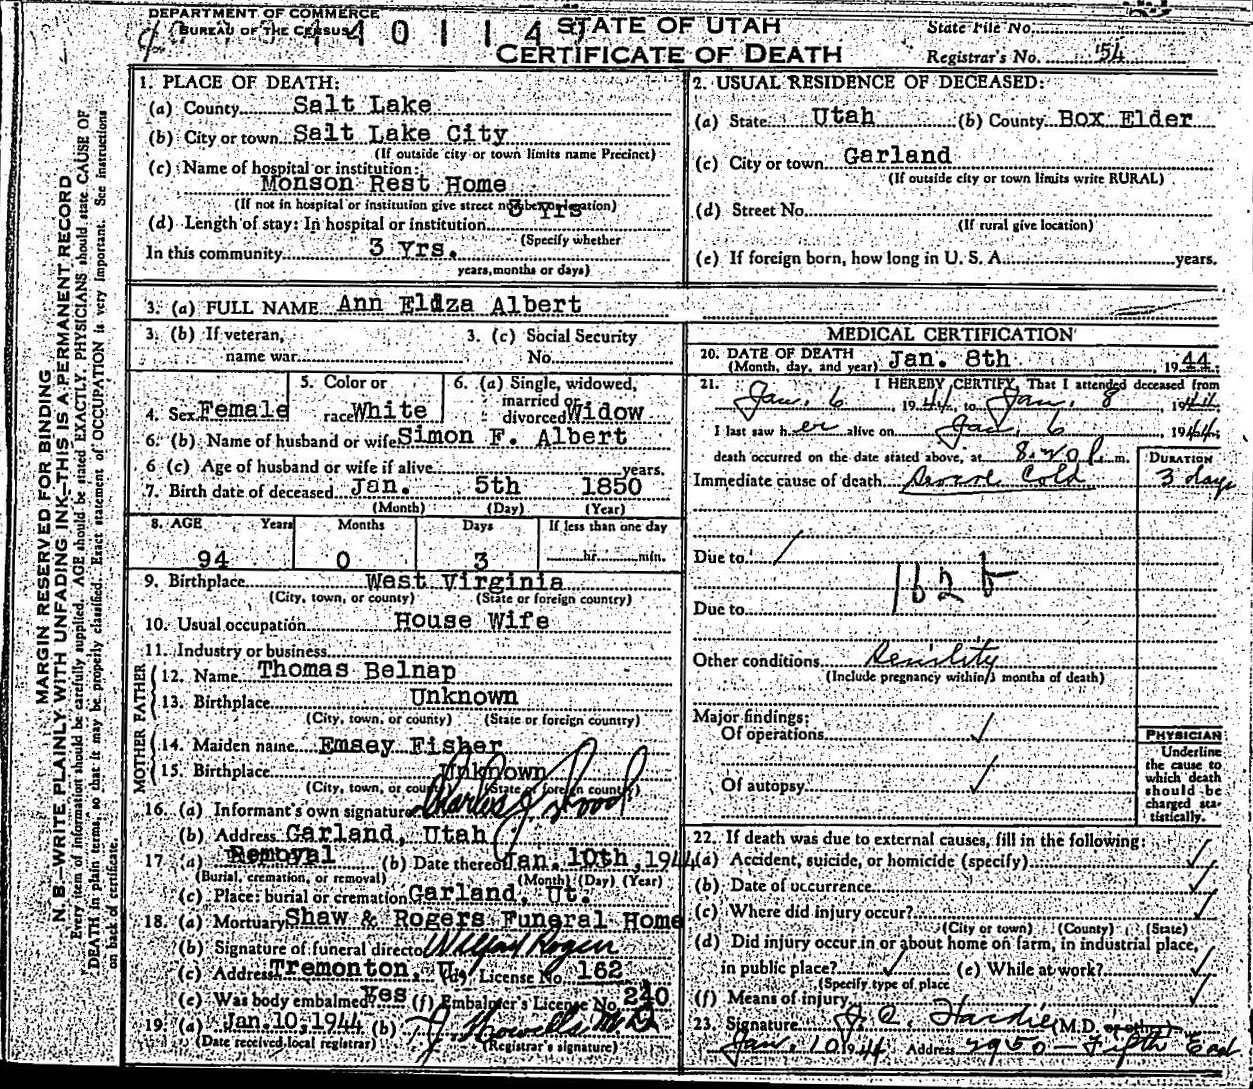 DEPARTMENT OF COMMERCE
BUREAU OF THE CENSUS
STATE OF UTAH
CERTIFICATE OF DEATH
State File No.
Registrar's No. 54
MARGIN RESERVED FOR BINDING
N. B.—WRITE PLAINLY WITH UNFADING INK—THIS IS A PERMANENT RECORD
Every item of information should be carefully supplied. AGE should be stated EXACTLY. PHYSICIANS should state CAUSE OF
DEATH in plain terms, so that it may be properly classified. Exact statement of OCCUPATION is very important. See instructions
on back of certificate.
1. PLACE OF DEATH:
(a) County Salt Lake
(b) City or town Salt Lake City
(If outside city or town limits name Precinct)
(c) Name of hospital or institution:
Monson Rest Home
(If not in hospital or institution give street number or location)
3 Yrs
(d) Length of stay: In hospital or institution
(Specify whether
In this community 3 Yrs.
years, months or days)
2. USUAL RESIDENCE OF DECEASED:
(a) State Utah (b) County Box Elder
(c) City or town Garland
(If outside city or town limits write RURAL)
(d) Street No.
(If rural give location)
(e) If foreign born, how long in U. S. A. years.
3. (a) FULL NAME Ann Eliza Albert
3. (b) If veteran, name war
3. (c) Social Security No.
4. Sex Female
5. Color or race White
6. (a) Single, widowed, married or divorced Widow
6. (b) Name of husband or wife Simon F. Albert
6 (c) Age of husband or wife if alive years.
7. Birth date of deceased Jan. 5th 1850
(Month) (Day) (Year)
8. AGE Years Months Days If less than one day
94 0 3 hr. min.
9. Birthplace West Virginia
(City, town, or county) (State or foreign country)
10. Usual occupation House Wife
11. Industry or business
FATHER
12. Name Thomas Belnap
13. Birthplace Unknown
(City, town, or county) (State or foreign country)
MOTHER
14. Maiden name Emsey Fisher
15. Birthplace Unknown
(City, town, or county) (State or foreign country)
16. (a) Informant's own signature Charles J. Wood
(b) Address Garland, Utah
17 (a) Removal (b) Date thereof Jan. 10th, 1944
(Burial, cremation, or removal) (Month) (Day) (Year)
(c) Place: burial or cremation Garland, Ut.
18. (a) Mortuary Shaw & Rogers Funeral Home
(b) Signature of funeral director Rogers
(c) Address Tremonton, U. License No. 162
(e) Was body embalmed Yes (f) Embalmer's License No. 240
19. (a) Jan. 10, 1944 (b) T. J. Howells M.D.
(Date received local registrar) (Registrar's signature)
MEDICAL CERTIFICATION
20. DATE OF DEATH Jan. 8th, 1944
(Month, day, and year)
21. I HEREBY CERTIFY, That I attended deceased from
Jan. 6 1944, to Jan. 8, 1944
I last saw h er alive on Jan. 6 1944
death occurred on the date stated above, at 8:20 P. m.
DURATION
Immediate cause of death Cold 3 days
Due to
162 b
Due to
Other conditions Senility
(Include pregnancy within 3 months of death)
Major findings:
Of operations
Of autopsy
PHYSICIAN
Underline
the cause to
which death
should be
charged sta-
tistically.
22. If death was due to external causes, fill in the following:
(a) Accident, suicide, or homicide (specify)
(b) Date of occurrence
(c) Where did injury occur?
(City or town) (County) (State)
(d) Did injury occur in or about home on farm, in industrial place,
in public place? (e) While at work?
(Specify type of place
(f) Means of injury
23. Signature J. C. Hardie (M.D. or other)
Jan. 10 1944 Address 2950 - Fifth East